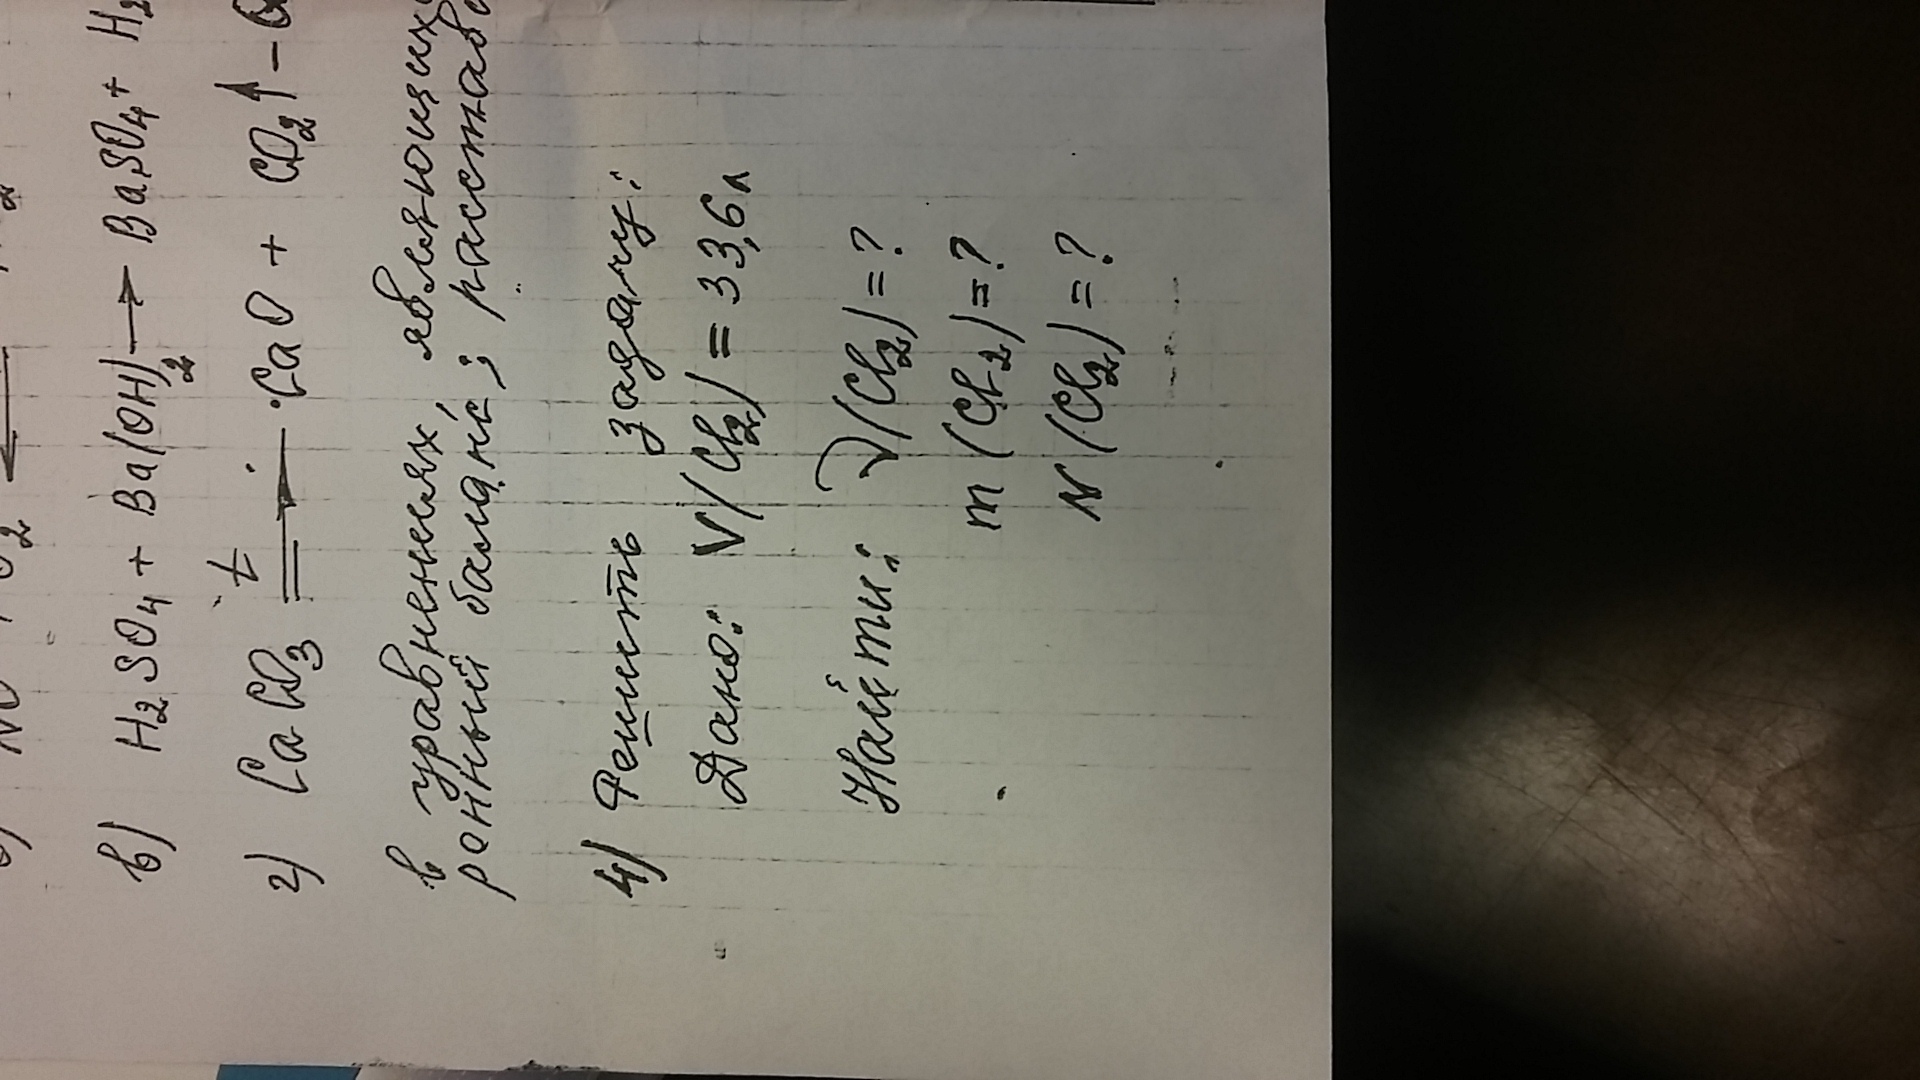 в) H2SO4 + Ba(OH)2 → BaSO4 + H2
г) CaCO3 t ⇌ CaO + CO2↑ – Q
в уравнениях, являющихся
ронный баланс; расстав
4) Решить задачу:
Дано: V(Cl2) = 33,6 л
Найти: ν(Cl2) = ?
m(Cl2) = ?
N(Cl2) = ?